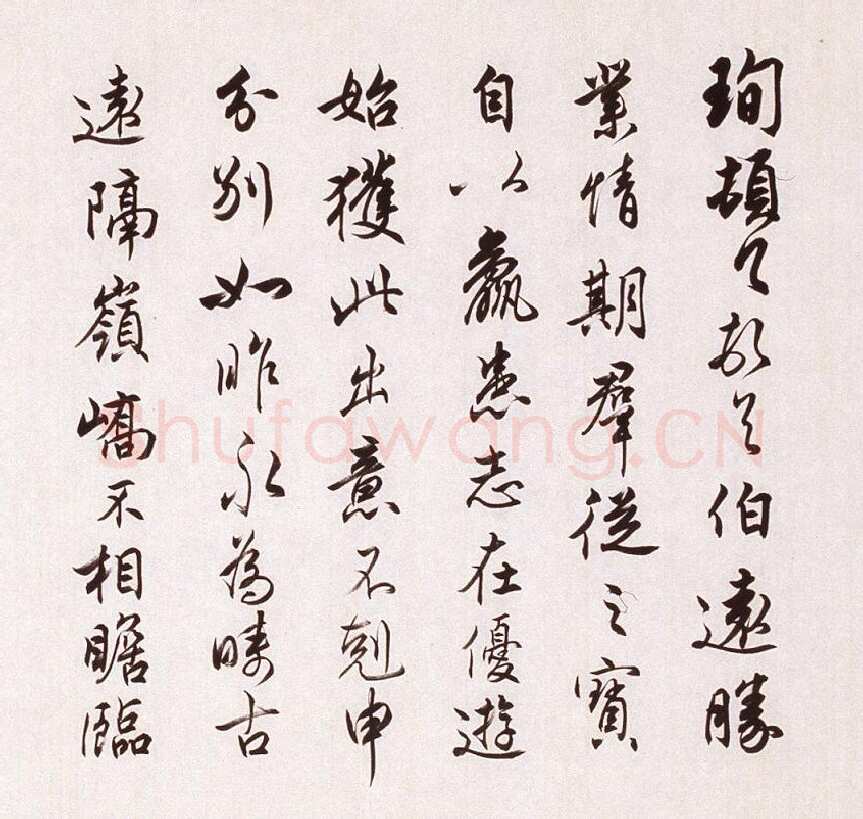 珣頓首頓首伯遠勝
業情期羣從之寶
自以羸患志在優遊
始獲此出意不剋申
分別如昨永為疇古
遠隔嶺嶠不相瞻臨
shufawang.CN